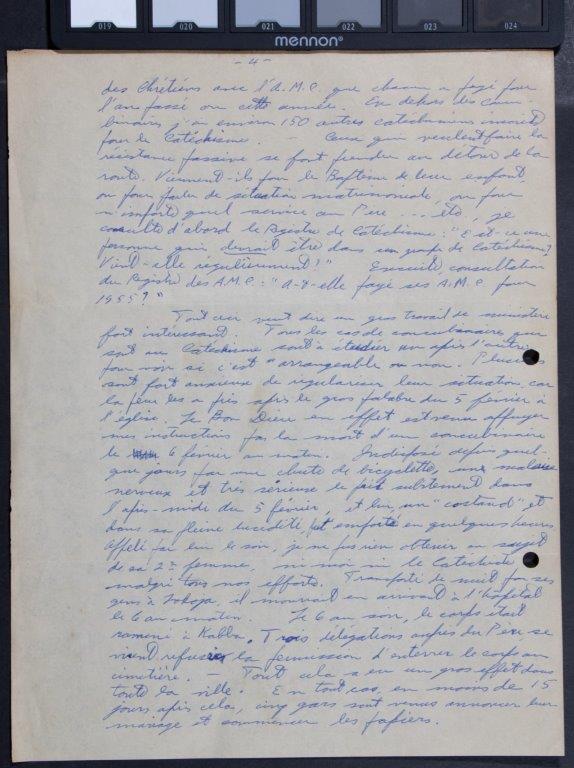 019 020 021 022 023 024
mennon®
- 4 -
des Chrétiens avec l'A.M.C. que chacun a payé pour
l'an passé ou cette année. En dehors des concu-
binaires, j'ai environ 150 autres catéchumènes inscrits
pour le Catéchisme. - Ceux qui veulent faire la
résistance passive se font prendre au détour de la
route. Viennent-ils pour le Baptême de leur enfant,
ou pour parler de situation matrimoniale, ou pour
n'importe quel service au Père... etc, je
consulte d'abord le Registre de Catéchisme: "Est-ce une
personne qui devrait être dans un groupe de Catéchisme?
Vient-elle régulièrement?" Ensuite, consultation
du Registre des A.M.C: "A-t-elle payé ses A.M.C. pour
1955?"
Tout cela veut dire un gros travail de ministère
fort intéressant. Tous les cas de concubinaires qui
sont au Catéchisme sont à étudier un après l'autre
pour voir si c'est "arrangeable" ou non. Plusieurs
sont fort anxieux de régulariser leur situation, car
la peur les a pris après le gros palabre du 5 février à
l'église. Le Bon Dieu en effet est venu appuyer
mes instructions par la mort d'un concubinaire
le 6 février au matin. Indisposé depuis quel-
que jours par une chute de bicyclette, une malaise
nerveux et très sérieuse le prit subitement dans
l'après-midi du 5 février, et lui, un "costaud" et
dans sa pleine lucidité, fut emporté en quelques heures.
Appelé par lui le soir, je ne pus rien obtenir au sujet
de sa 2e femme, ni moi ni le Catéchiste
malgré tous nos efforts. Transporté de nuit par ses
gens à Lokoja, il mourait en arrivant à l'hôpital
le 6 au matin. Le 6 au soir, le corps était
ramené à Kabba. Trois délégations auprès du Père se
virent refuser la permission d'enterrer le corps au
cimetière. - Tout cela a eu un gros effet dans
toute la ville. En tout cas, en moins de 15
jours après cela, cinq gars sont venus annoncer leur
mariage et commencer les papiers.